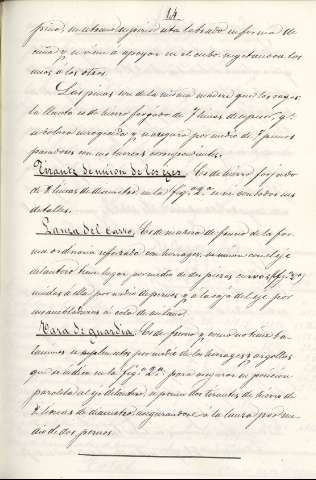 14
pino, un extremo superior esta labrado en forma de
cuña y se van a apoyar en el cubo sujetandose los
unos a los otros.
Las pinas son de la misma madera que los rayos;
la llanta es de hierro forjado de 7 lineas de espesor, qe
a dobera enrojecida y se asegura por medio de 7 pernos
pasadores con sus tuercas correspondientes.
Tirante de union de los ejes. Es de hierro forjado
de 8 lineas de diametro, en la figa 2a se ve con todos sus
detalles.
Lanza del carro. Es de madera de fresno de la for
ma ordinaria reforzada con herrages, su union con el eje
delantero tiene lugar por medio de dos piezas curvas (figa 2a)
unidas a ella por medio de pernos y a la caja del eje por
ensambladura a cola de milano.
Vara de guardia. Es de fresno y como no tiene ba
lancines se suplen estos por medio de los herrages y argollas
que se indican en la figa 2a para asegurar su posicion
paralela al eje delantero, se ponen dos tirantes de hierro de
8 lineas de diametro, asegurandose a la lanza por me
dio de dos pernos.